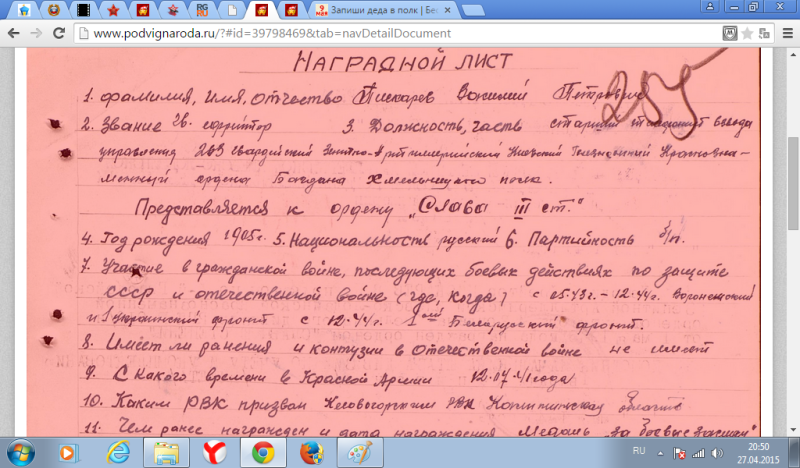 Запиши деда в полк | Бе
www.podvignaroda.ru/?#id=39798469&tab=navDetailDocument
НАГРАДНОЙ ЛИСТ
1. Фамилия, имя, отчество Пискарев Василий Петрович
2. Звание гв. ефрейтор 3. Должность, часть старший взвода
управления 263 гвардейский Зенитно-Артиллерийский Киевский Краснозна-
менный ордена Богдана Хмельницкого полк.
Представляется к ордену „Слава III ст."
4. Год рождения 1905г. 5. Национальность русский 6. Партийность б/п.
7. Участие в гражданской войне, последующих боевых действиях по защите
СССР и отечественной войне (где, когда) с 05.43г. - 12.44г. Воронежский
и 1 Украинский фронт с 12.44г. 1ый Белорусский фронт.
8. Имеет ли ранения и контузии в отечественной войне не имеет
9. С какого времени в Красной Армии 12.07.41 года
10. Каким РВК призван РВК область
11. Чем ранее награжден и дата награждения Медаль „За боевые
RU
20:50
27.04.2015